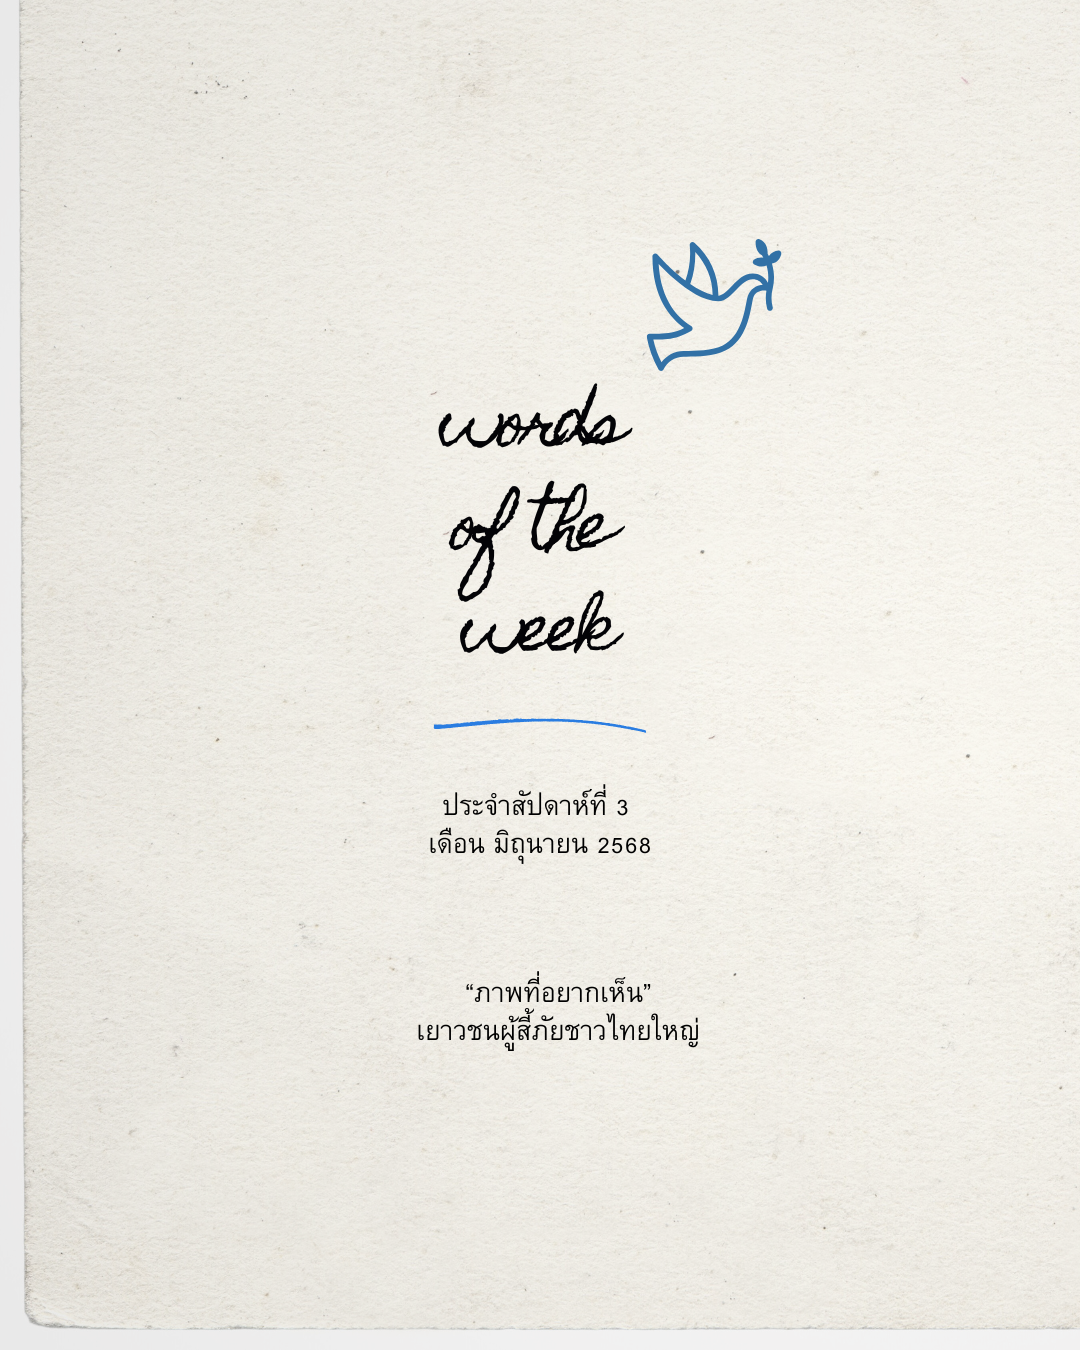 words
of the
week
ประจำสัปดาห์ที่ 3
เดือน มิถุนายน 2568
“ภาพที่อยากเห็น”
เยาวชนผู้ลี้ภัยชาวไทยใหญ่